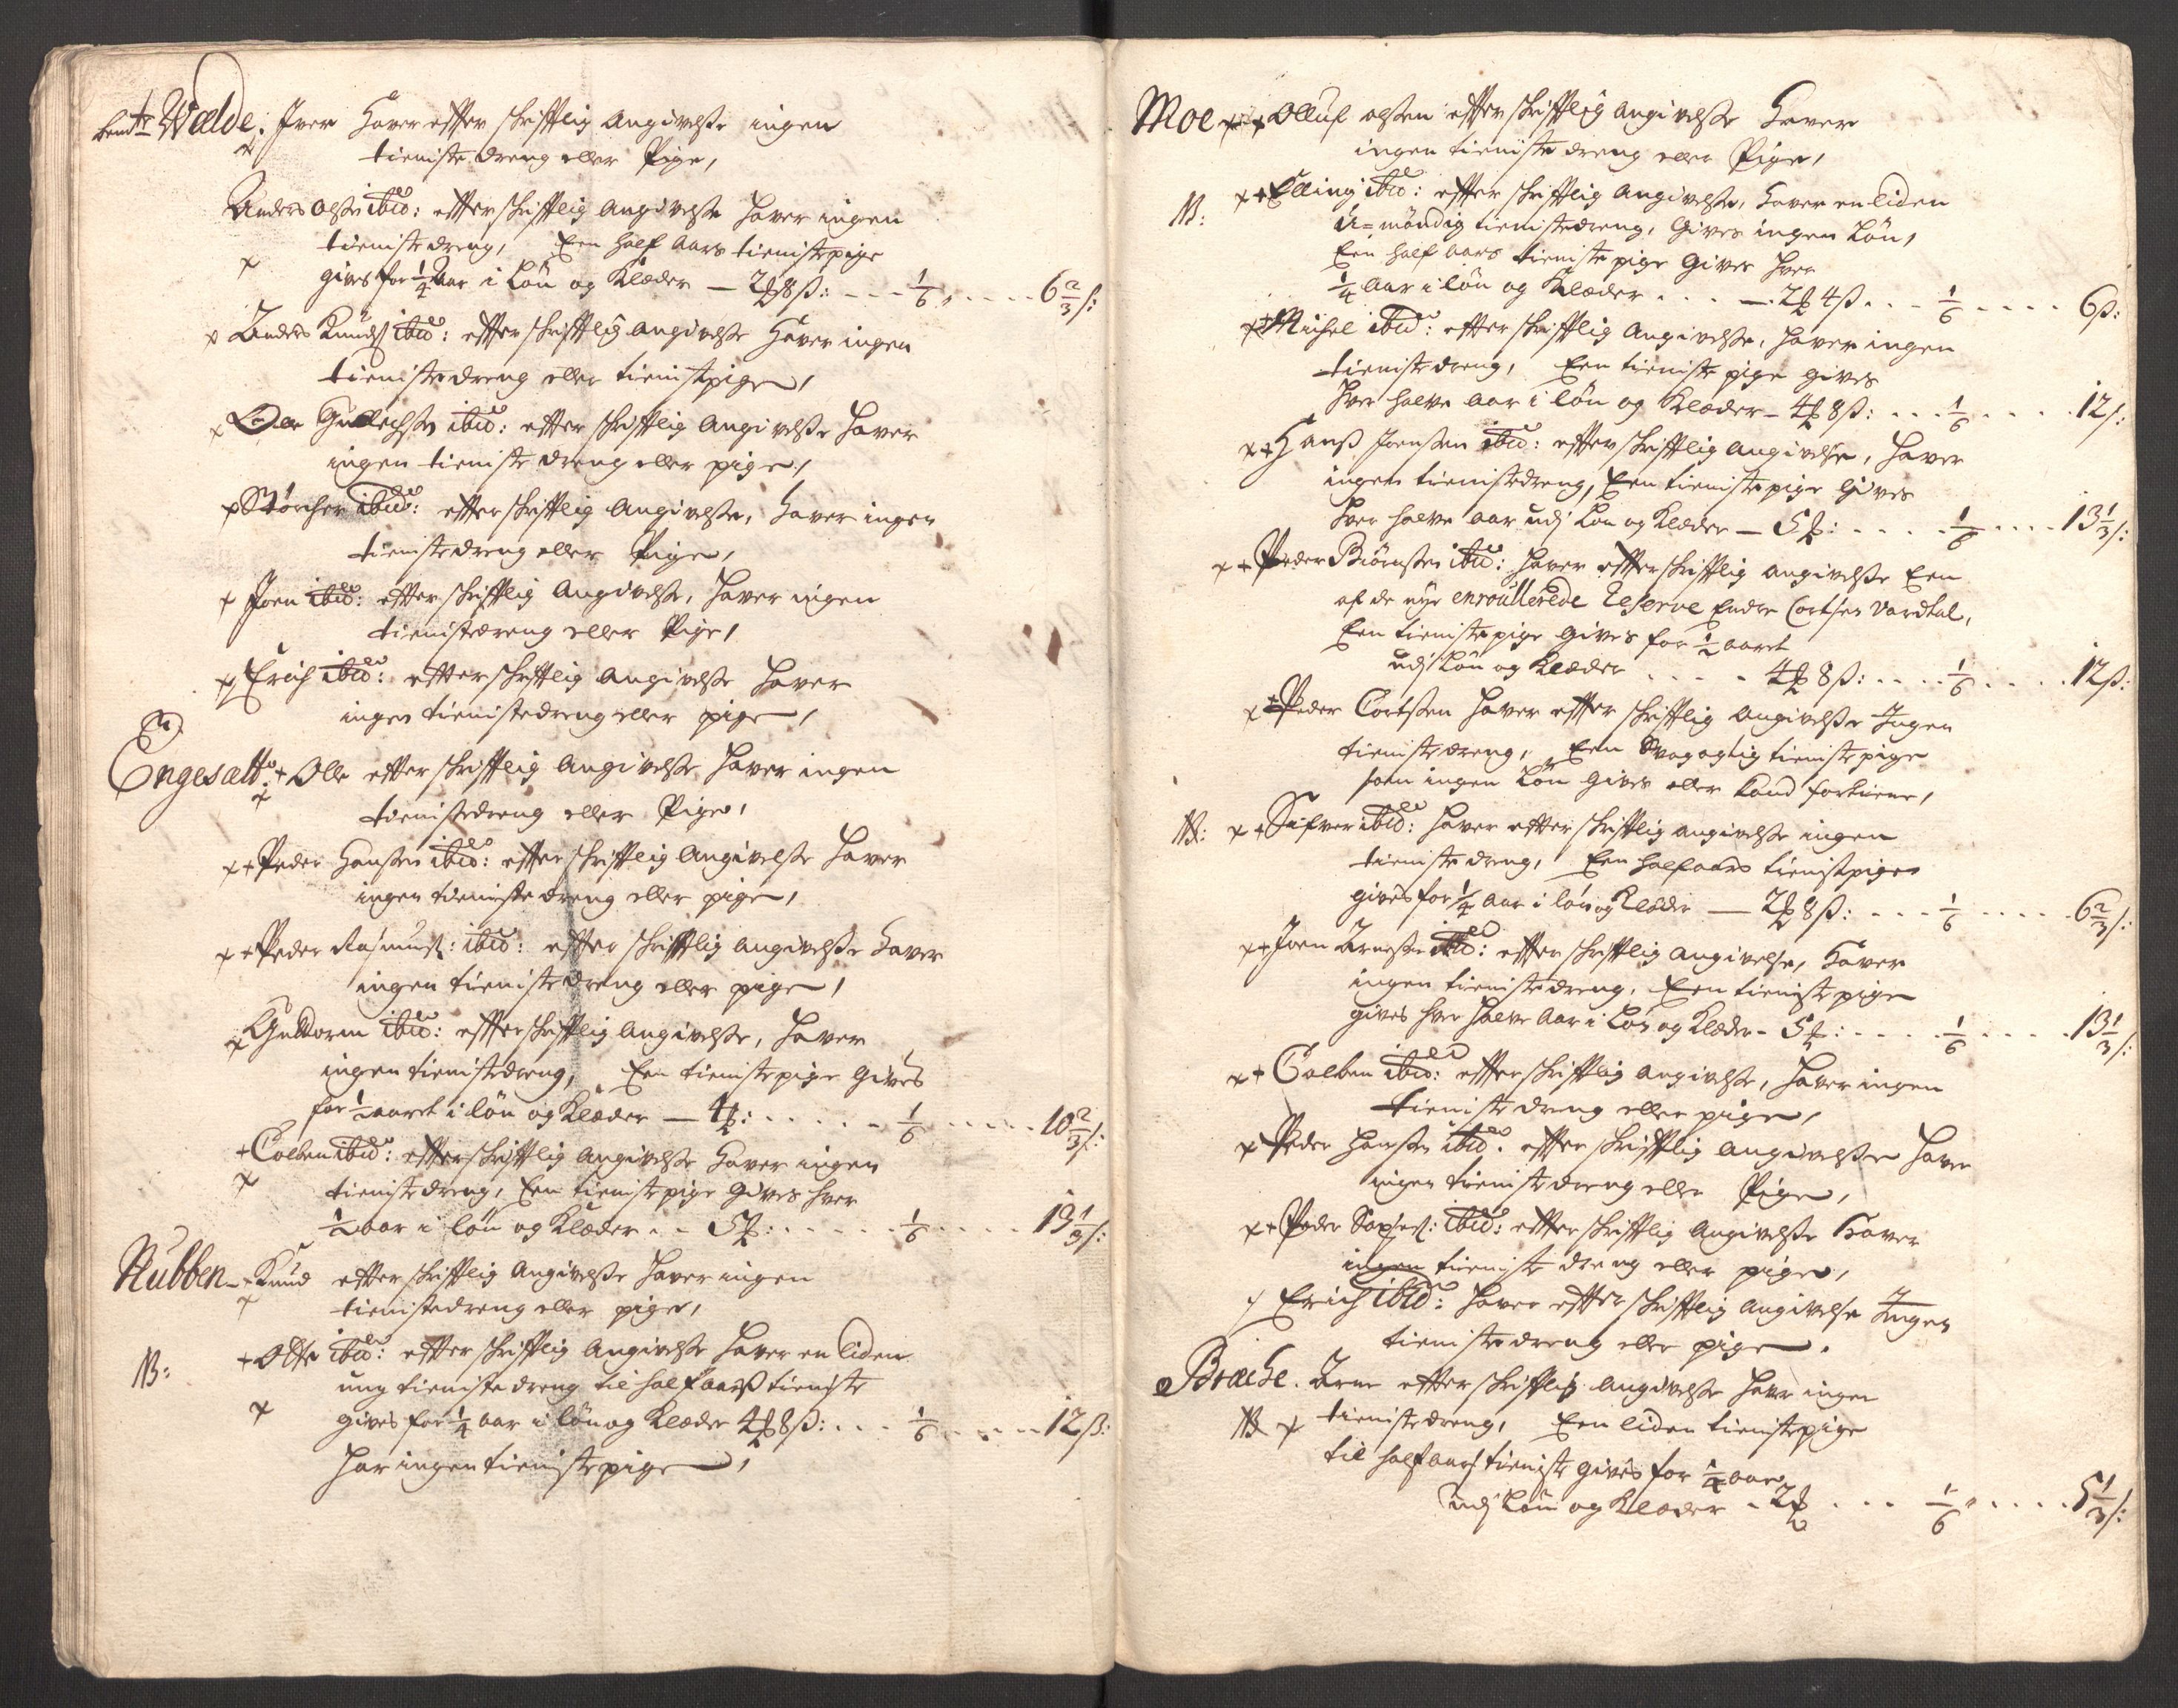 Wælde. Iver Haver effter skrifftlig Angivelse ingen
tieniste dreng eller Pige,
Anders Olsen ibid: effter skrifftlig Angivelse haver ingen
tieniste dreng, Een half Aars tienistepige
gives for 1/4 Aar i Løn og Klæder — 2 8ß: --- 1/6 ---- 6 2/3 s:
Anders Knuds ibid: effter skrifftlig Angivelse Haver ingen
tienistedreng eller tienistpige,
Ole ibid: effter skrifftlig Angivelse haver
ingen tieniste dreng eller pige,
ibid: effter skrifftlig Angivelse, haver ingen
tienistedreng eller Pige,
Joen ibid: effter skrifftlig Angivelse, haver ingen
tienistedreng eller Pige,
Erich ibid: effter skrifftlig Angivelse haver
ingen tienistedreng eller pige,
Engesætt. + Olle effter skrifftlig Angivelse haver ingen
tienistedreng eller Pige,
x + Peder Hansen ibid: effter skrifftlig Angivelse haver
ingen tieniste dreng eller pige,
x + Peder Rasmus: ibid: effter skrifftlig Angivelse haver
ingen tieniste dreng eller pige,
x Guttorm ibid: effter skrifftlig Angivelse, haver
ingen tienistedreng, Een tienistepige gives
for 1/2 aaret i løn og Klæder — 4: ----- 1/6 ----- 10 2/3 s:
+ Colben ibid: effter skrifftlig Angivelse haver ingen
tieniste dreng, Een tienistepige Gives hver
1/2 aar i løn og Klæder -- 5: ----- 1/6 ---- 13 1/3 s:
Nubben - + Knud effter skrifftlig Angivelse haver ingen
tienistedreng eller pige,
NB: + Olle ibid: effter skrifftlig Angivelse haver en liden
ung tieniste dreng til half aarß tieniste
gives for 1/4 aar i løn og Klæder 4 8ß: --- 1/6 ----- 12ß:
har ingen tienistepige,
Moe x + Olluf olsen effter skrifftlig Angivelse Haver
ingen tieniste dreng eller Pige,
NB: x + Elling ibid: effter skrifftlig Angivelse, haver en liden
u=møndig tienistedreng, Gives ingen Løn,
Een half aars tieniste pige Gives hver
1/4 aar i løn og Klæder ... — 2 4ß --- 1/6 ---- 6ß:
x + Michel ibid: effter skrifftlig Angivelse, haver ingen
tieniste dreng, Een tieniste pige gives
hver halve aar i løn og Klæder - 4 8ß: --- 1/6 ----- 12s:
x + Hanß Joensen ibid: effter skrifftlig Angivelse, haver
ingen tienistedreng, Een tieniste pige Gives
hver halve aar udj Løn og Klæder — 5: ---- 1/6 ---- 13 1/3 s:
x + Peder Biørnsen ibid: haver effter skrifftlig angivelse Een
af de nye enroullerede Reserve Endre Cortsen Vardtal,
Een tieniste pige Gives for 1/2 aaret
udj Løn og Klæder ---- 4 8ß: ---- 1/6 ---- 12ß:
x + Peder Cortsen haver effter skrifftlig Angivelse Ingen
tieniste dreng, Een tienistepige
som ingen Løn Gives eller kand fortiene,
NB: x + Sifver ibid: haver effter skrifftlig angivelse ingen
tieniste dreng, Een half aars tienistpige
gives for 1/4 aar i løn og Kleder — 2 8ß: --- 1/6 ----- 6 2/3 s:
x + Joen Arnesen ibid: effter skrifftlig Angivelse, haver
ingen tienistedreng, Een tieniste pige
gives hver halve Aar i Løn og Klæder - 5: ---- 1/6 ---- 13 1/3 s:
x + Colben ibid: effter skrifftlig Angivelse, haver ingen
tieniste dreng eller pige,
x Peder Hansen ibid: effter skrifftlig Angivelse haver
ingen tieniste dreng eller Pige,
x + Peder ibid: effter skrifftlig Angivelse haver
ingen tieniste dreng eller pige,
Erich ibid: haver effter skrifftlig Angivelse Ingen
tieniste dreng eller pige.
Bræche. Arne effter skrifftlig Angivelse haver ingen
NB x tienistedreng, Een liden tienistepige
til half aars tieniste gives for 1/4 aar
udj Løn og Klæder - 2 --- 1/6 ----- 5 1/3 s: